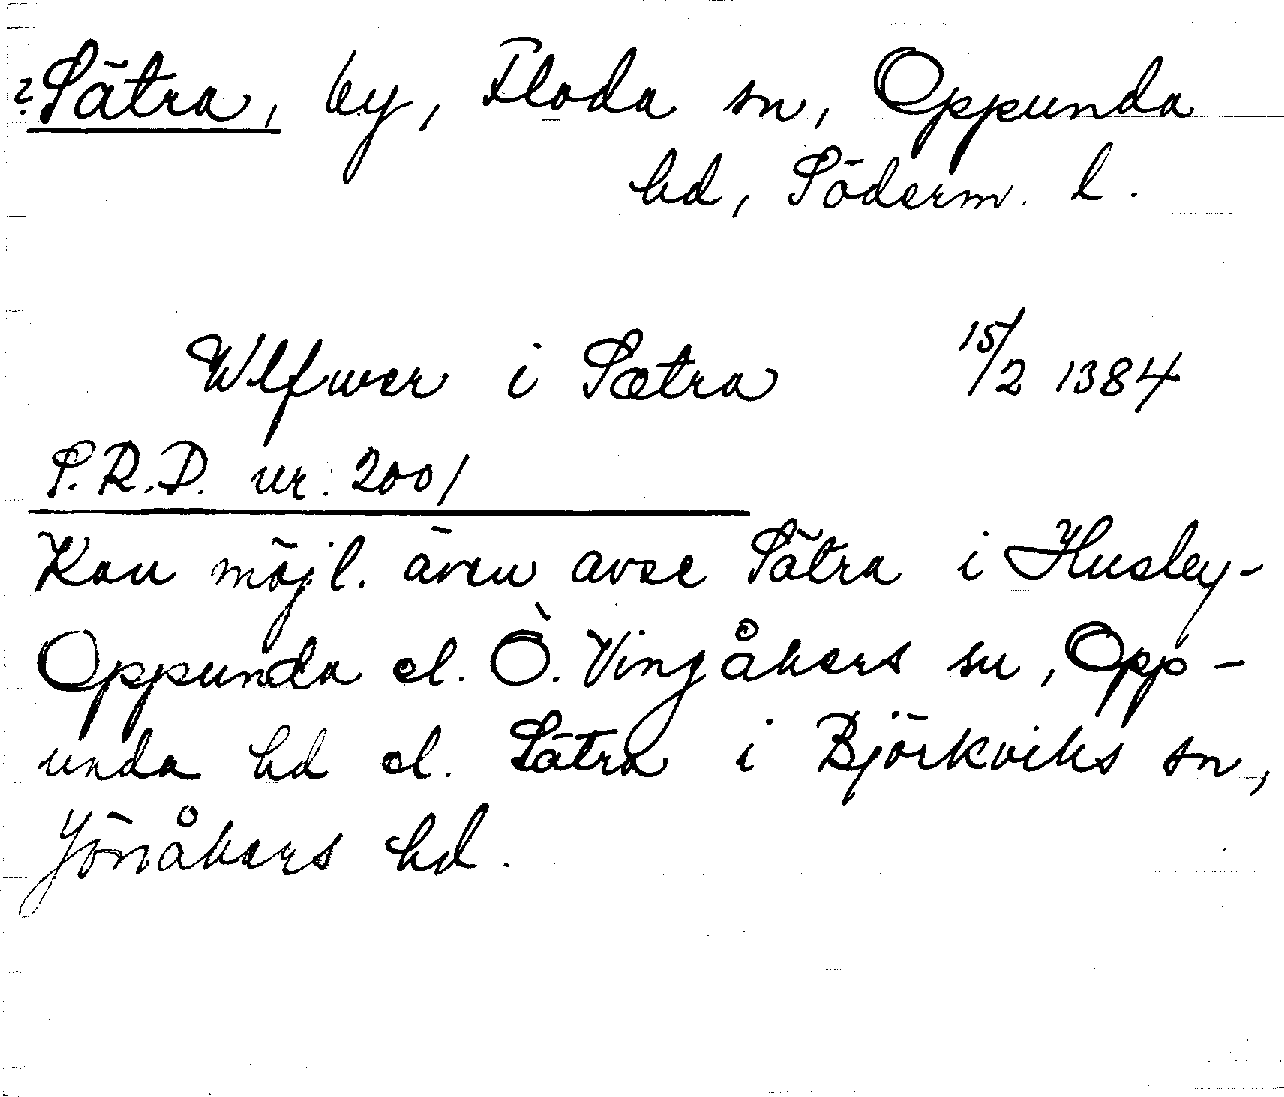 ? Sätra, by, Floda sn, Oppunda
hd, Söderm. l.
Wlfwer i Sætra 15/2 1384
S.R.D. nr. 2001
Kan möjl. även avse Sätra i Husby-
Oppunda el. Ö. Vingåkers sn, Opp-
unda hd el. Sätra i Björkviks sn,
Jönåkers hd.